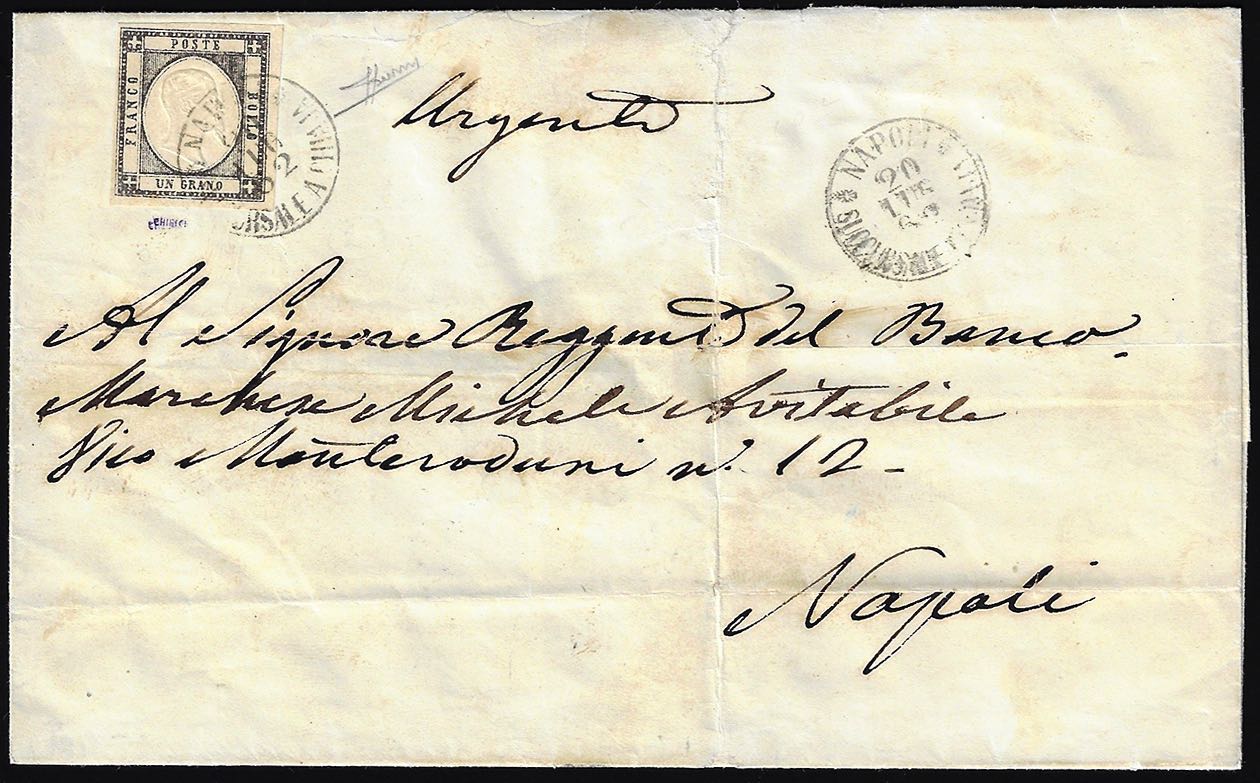 POSTE
FRANCO
BOLLO
UN GRANO
Urgente
NAPOLI
20
LUG
62
Al Signore Reggente del Banco
Marchese Michele Avitabile
Vico Monteroduni n. 12 -
Napoli